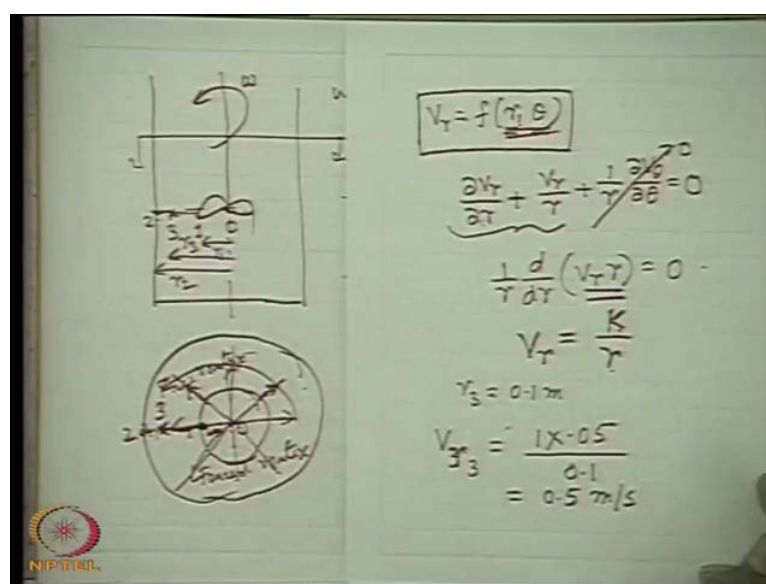 ω
2 3 1 0
r₃
r₂
2 3
Forced vortex
Vᵣ = f(r₁ θ)
∂Vᵣ/∂r + Vᵣ/r + 1/r ∂Vθ/∂θ = 0
0
1/r d/dr (Vᵣ r) = 0
Vᵣ = K/r
r₃ = 0.1 m
V₃r₃ = 1×.05/0.1
= 0.5 m/s
NPTEL